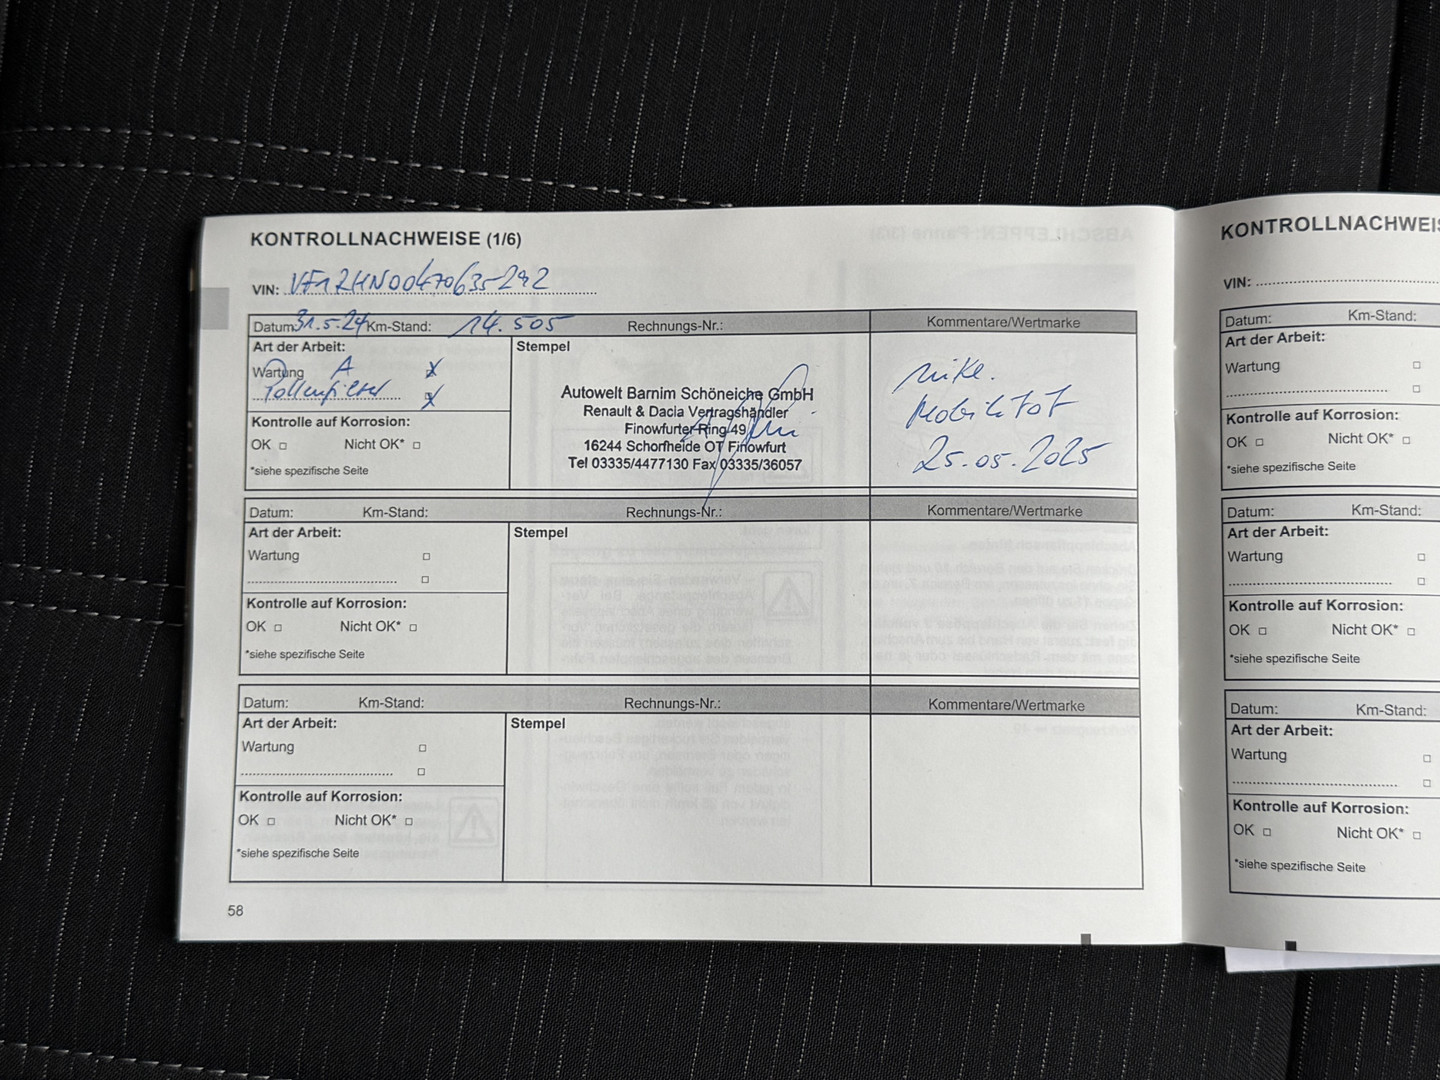 KONTROLLNACHWEISE (1/6)
VIN:
Datum: 31.5.24 Km-Stand: 14.505 Rechnungs-Nr.: Kommentare/Wertmarke
Art der Arbeit: Stempel
Wartung A
Pollenfilter
Kontrolle auf Korrosion:
OK Nicht OK*
*siehe spezifische Seite
Autowelt Barnim Schöneiche GmbH
Renault & Dacia Vertragshändler
Finowfurter Ring 49
16244 Schorfheide OT Finowfurt
Tel 03335/4477130 Fax 03335/36057
Mobilität
25.05.2025
Datum: Km-Stand: Rechnungs-Nr.: Kommentare/Wertmarke
Art der Arbeit: Stempel
Wartung
Kontrolle auf Korrosion:
OK Nicht OK*
*siehe spezifische Seite
Datum: Km-Stand: Rechnungs-Nr.: Kommentare/Wertmarke
Art der Arbeit: Stempel
Wartung
Kontrolle auf Korrosion:
OK Nicht OK*
*siehe spezifische Seite
58
KONTROLLNACHWEIS
VIN:
Datum: Km-Stand:
Art der Arbeit:
Wartung
Kontrolle auf Korrosion:
OK Nicht OK*
*siehe spezifische Seite
Datum: Km-Stand:
Art der Arbeit:
Wartung
Kontrolle auf Korrosion:
OK Nicht OK*
*siehe spezifische Seite
Datum: Km-Stand:
Art der Arbeit:
Wartung
Kontrolle auf Korrosion:
OK Nicht OK*
*siehe spezifische Seite